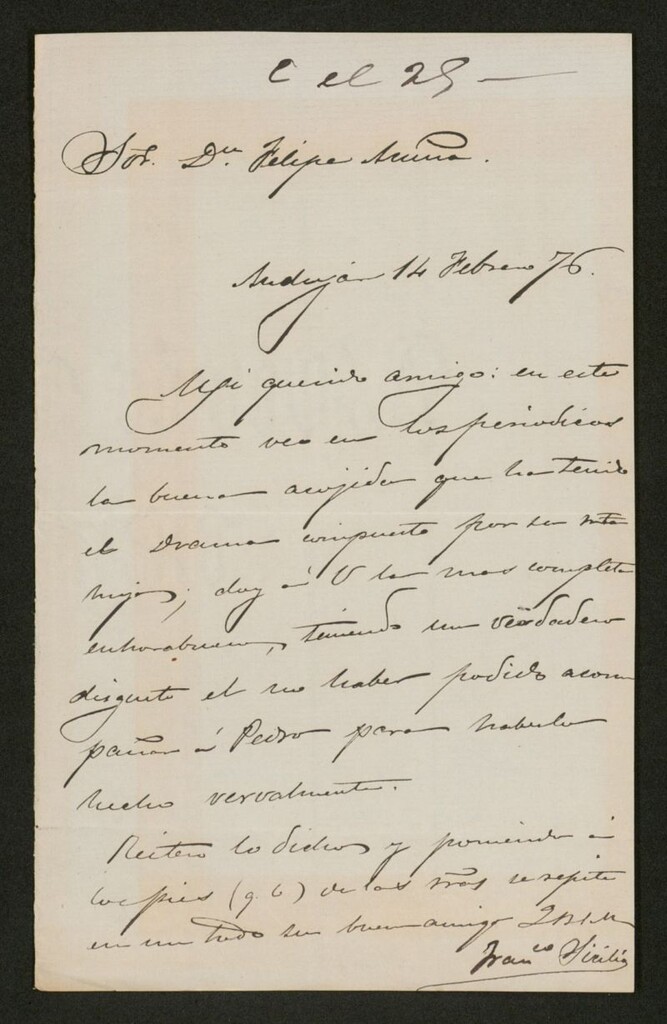 C el 25
Sor. Dn. Felipe Acuña.
Andujar 14 Febrero 76.
Mi querido amigo: en este
momento veo en los periodicos
la buena acojida que ha tenido
el drama compuesto por su
hija; doy á V la mas completa
enhorabuena, teniendo un verdadero
disgusto el no haber podido acom
pañar á Pedro para haberlo
hecho vervalmente.
Reitero lo dicho y poniendo á
los pies (q. b) de las sras se repite
en un todo su buen amigo Q B S M
Franco Sicilia